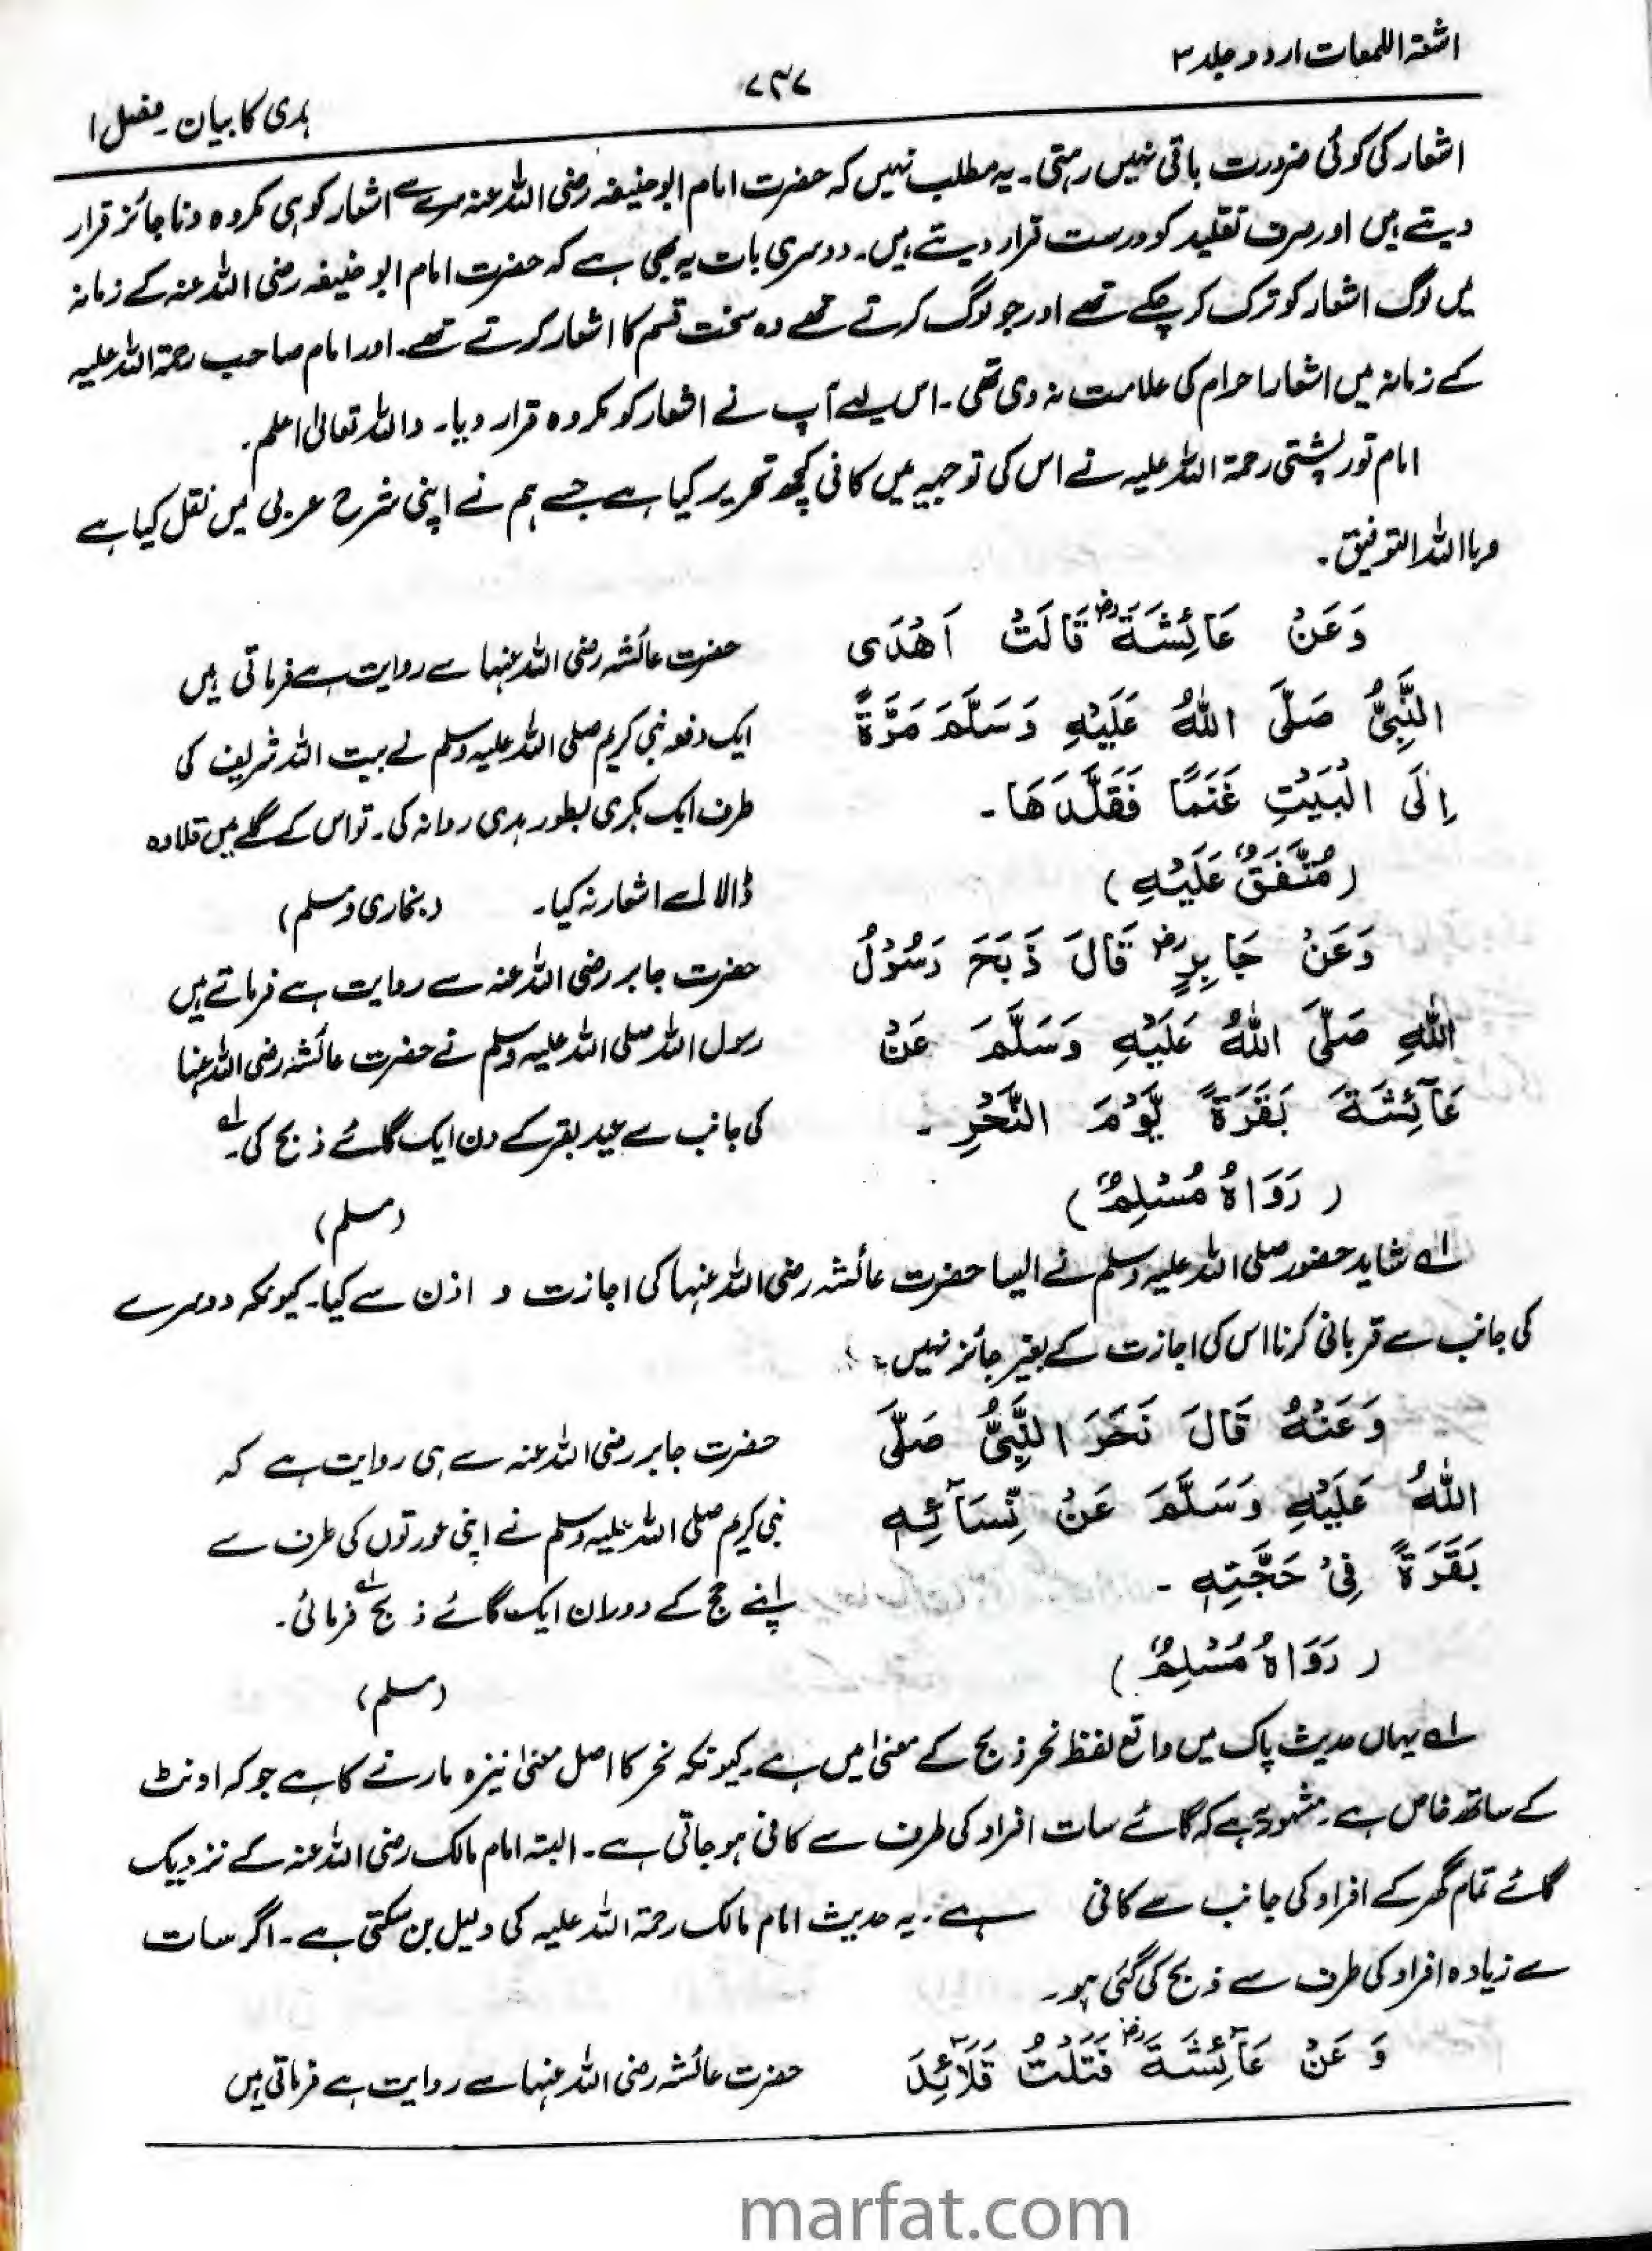 اشعۃ اللمعات اردو جلد ۳
۷۳۷
ہدی کا بیان۔ فصل ۱
اشعار کی کوئی ضرورت باقی نہیں رہتی۔ یہ مطلب نہیں کہ حضرت امام ابو حنیفہ رضی اللہ عنہ سرے سے اشعار کو ہی مکروہ و ناجائز قرار
دیتے ہیں اور صرف تقلید کو درست قرار دیتے ہیں۔ دوسری بات یہ بھی ہے کہ حضرت امام ابو حنیفہ رضی اللہ عنہ کے زمانہ
میں لوگ اشعار کو ترک کر چکے تھے اور جو لوگ کرتے تھے وہ سخت قسم کا اشعار کرتے تھے۔ اور امام صاحب رحمۃ اللہ علیہ
کے زمانہ میں اشعار احرام کی علامت نہ رہی تھی۔ اس لیے آپ نے اشعار کو مکروہ قرار دیا۔ واللہ تعالیٰ اعلم۔
امام تورپشتی رحمۃ اللہ علیہ نے اس کی توجیہ میں کافی کچھ تحریر کیا ہے جسے ہم نے اپنی شرح عربی میں نقل کیا ہے
وبااللہ التوفیق۔
وَعَنْ عَائِشَةَ رض قَالَتْ اَهْدَى
النَّبِيُّ صَلَّى اللهُ عَلَيْهِ وَسَلَّمَ مَرَّةً
اِلَى الْبَيْتِ غَنَمًا فَقَلَّدَهَا۔
(مُتَّفَقٌ عَلَيْهِ)
حضرت عائشہ رضی اللہ عنہا سے روایت ہے فرماتی ہیں
ایک دفعہ نبی کریم صلی اللہ علیہ وسلم نے بیت اللہ شریف کی
طرف ایک بکری بطور ہدی روانہ کی۔ تو اس کے گلے میں قلادہ
ڈالا اسے اشعار نہ کیا۔ (بخاری و مسلم)
وَعَنْ جَابِرٍ رض قَالَ ذَبَحَ رَسُوْلُ
اللهِ صَلَّى اللهُ عَلَيْهِ وَسَلَّمَ عَنْ
عَآئِشَةَ بَقَرَةً يَّوْمَ النَّحْرِ۔
(رَوَاهُ مُسْلِمٌ)
حضرت جابر رضی اللہ عنہ سے روایت ہے فرماتے ہیں
رسول اللہ صلی اللہ علیہ وسلم نے حضرت عائشہ رضی اللہ عنہا
کی جانب سے عید بقر کے دن ایک گائے ذبح کی۔ ؂۱
(مسلم)
؂۱ شاید حضور صلی اللہ علیہ وسلم نے ایسا حضرت عائشہ رضی اللہ عنہا کی اجازت و اذن سے کیا۔ کیونکہ دوسرے
کی جانب سے قربانی کرنا اس کی اجازت کے بغیر جائز نہیں۔
وَعَنْهُ قَالَ نَحَرَ النَّبِيُّ صَلَّى
اللهُ عَلَيْهِ وَسَلَّمَ عَنْ نِّسَآئِهٖ
بَقَرَةً فِيْ حَجَّتِهٖ۔
(رَوَاهُ مُسْلِمٌ)
حضرت جابر رضی اللہ عنہ سے ہی روایت ہے کہ
نبی کریم صلی اللہ علیہ وسلم نے اپنی عورتوں کی طرف سے
اپنے حج کے دوران ایک گائے ذبح ؂۱ فرمائی۔
(مسلم)
؂۱ یہاں حدیث پاک میں واقع لفظ نحر ذبح کے معنیٰ میں ہے۔ کیونکہ نحر کا اصل معنیٰ نیزہ مارنے کا ہے جو کہ اونٹ
کے ساتھ خاص ہے۔ مشہور یہ ہے کہ گائے سات افراد کی طرف سے کافی ہو جاتی ہے۔ البتہ امام مالک رضی اللہ عنہ کے نزدیک
گائے تمام گھر کے افراد کی جانب سے کافی ہے۔ یہ حدیث امام مالک رحمۃ اللہ علیہ کی دلیل بن سکتی ہے۔ اگر سات
سے زیادہ افراد کی طرف سے ذبح کی گئی ہو۔
وَ عَنْ عَآئِشَةَ رض فَتَلْتُ قَلَآئِدَ
حضرت عائشہ رضی اللہ عنہا سے روایت ہے فرماتی ہیں
marfat.com